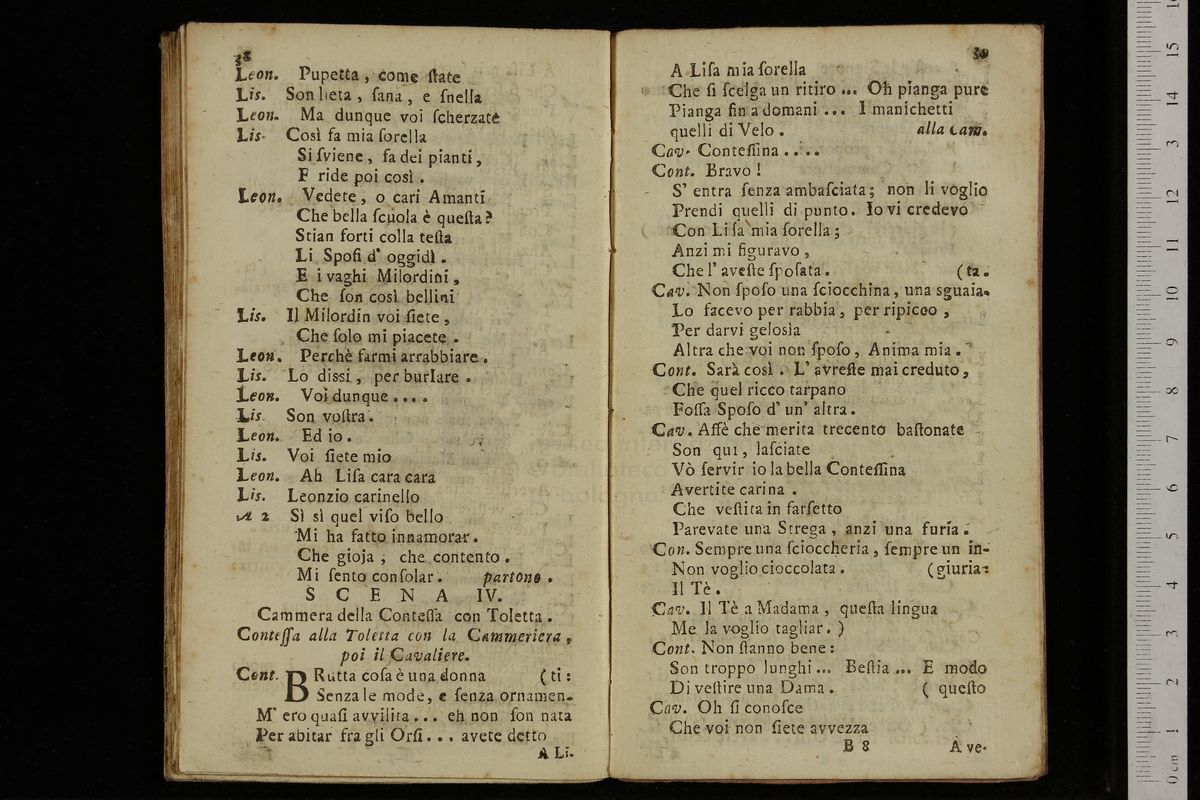 38
Leon. Pupetta, come ſtate
Lis. Son lieta, ſana, e ſnella
Leon. Ma dunque voi ſcherzate
Lis- Così fa mia ſorella
Si ſviene, fa dei pianti,
E ride poi così.
Leon. Vedete, o cari Amanti
Che bella ſcuola è queſta?
Stian forti colla teſta
Li Spoſi d' oggidì.
E i vaghi Milordini,
Che ſon così bellini
Lis. Il Milordin voi ſiete,
Che ſolo mi piacete.
Leon. Perchè farmi arrabbiare.
Lis. Lo dissi, per burlare.
Leon. Voi dunque....
Lis. Son voſtra.
Leon. Ed io.
Lis. Voi ſiete mio
Leon. Ah Liſa cara cara
Lis. Leonzio carinello
A 2 Sì sì quel viſo bello
Mi ha fatto innamorar.
Che gioja, che contento.
Mi ſento conſolar. partono.
SCENA IV.
Cammera della Conteſſa con Toletta.
Conteſſa alla Toletta con la Cammeriera,
poi il Cavaliere.
Cont. BRutta coſa è una donna (ti:
Senza le mode, e ſenza ornamen-
M' ero quaſi avvilita... eh non ſon nata
Per abitar fra gli Orſi... avete detto
A Li-
A Liſa mia ſorella
Che ſi ſcelga un ritiro... Oh pianga pure
Pianga fin a domani... I manichetti
quelli di Velo. alla Cam.
Cav. Conteſſina....
Cont. Bravo!
S' entra ſenza ambaſciata; non li voglio
Prendi quelli di punto. Io vi credevo
Con Liſa mia ſorella;
Anzi mi figuravo,
Che l' aveſte ſpoſata. (ta.
Cav. Non ſpoſo una ſciocchina, una sguaia-
Lo facevo per rabbia, per ripicco,
Per darvi gelosìa
Altra che voi non ſpoſo, Anima mia.
Cont. Sarà così. L' avreſte mai creduto,
Che quel ricco tarpano
Foſſa Spoſo d' un' altra.
Cav. Affè che merita trecento baſtonate
Son qui, laſciate
Vò ſervir io la bella Conteſſina
Avertite carina.
Che veſtita in farſetto
Parevate una Strega, anzi una furia.
Con. Sempre una ſcioccheria, ſempre un in-
Non voglio cioccolata. (giuria:
Il Tè.
Cav. Il Tè a Madama, queſta lingua
Me la voglio tagliar.)
Cont. Non ſtanno bene:
Son troppo lunghi... Beſtia... E modo
Di veſtire una Dama. (queſto
Cav. Oh ſi conoſce
Che voi non ſiete avvezza
B 8 A ve-